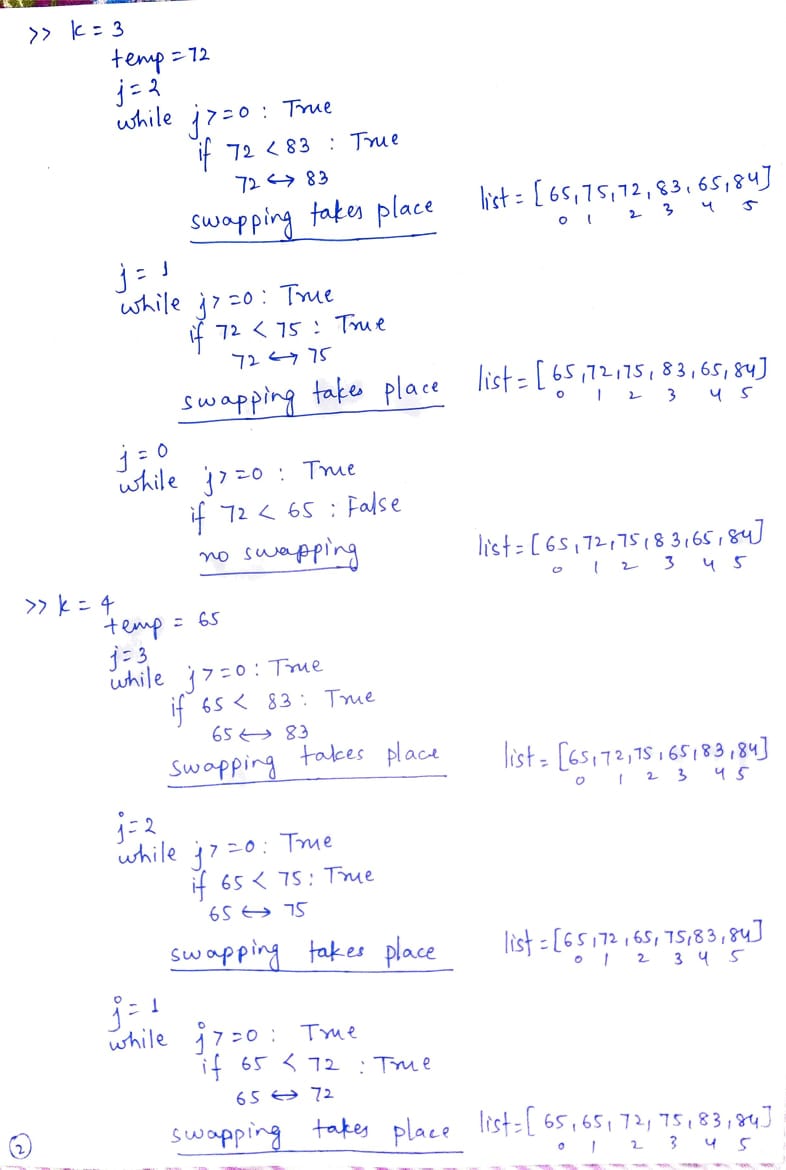 >> k = 3
temp = 72
j = 2
while j >= 0 : True
if 72 < 83 : True
72 ↔ 83
swapping takes place list = [65,75,72,83,65,84]
0 1 2 3 4 5
j = 1
while j >= 0 : True
if 72 < 75 : True
72 ↔ 75
swapping takes place list = [65,72,75,83,65,84]
0 1 2 3 4 5
j = 0
while j >= 0 : True
if 72 < 65 : False
no swapping list = [65,72,75,83,65,84]
0 1 2 3 4 5
>> k = 4
temp = 65
j = 3
while j >= 0 : True
if 65 < 83 : True
65 ↔ 83
swapping takes place list = [65,72,75,65,83,84]
0 1 2 3 4 5
j = 2
while j >= 0 : True
if 65 < 75 : True
65 ↔ 75
swapping takes place list = [65,72,65,75,83,84]
0 1 2 3 4 5
j = 1
while j >= 0 : True
if 65 < 72 : True
65 ↔ 72
swapping takes place list = [65,65,72,75,83,84]
0 1 2 3 4 5
2